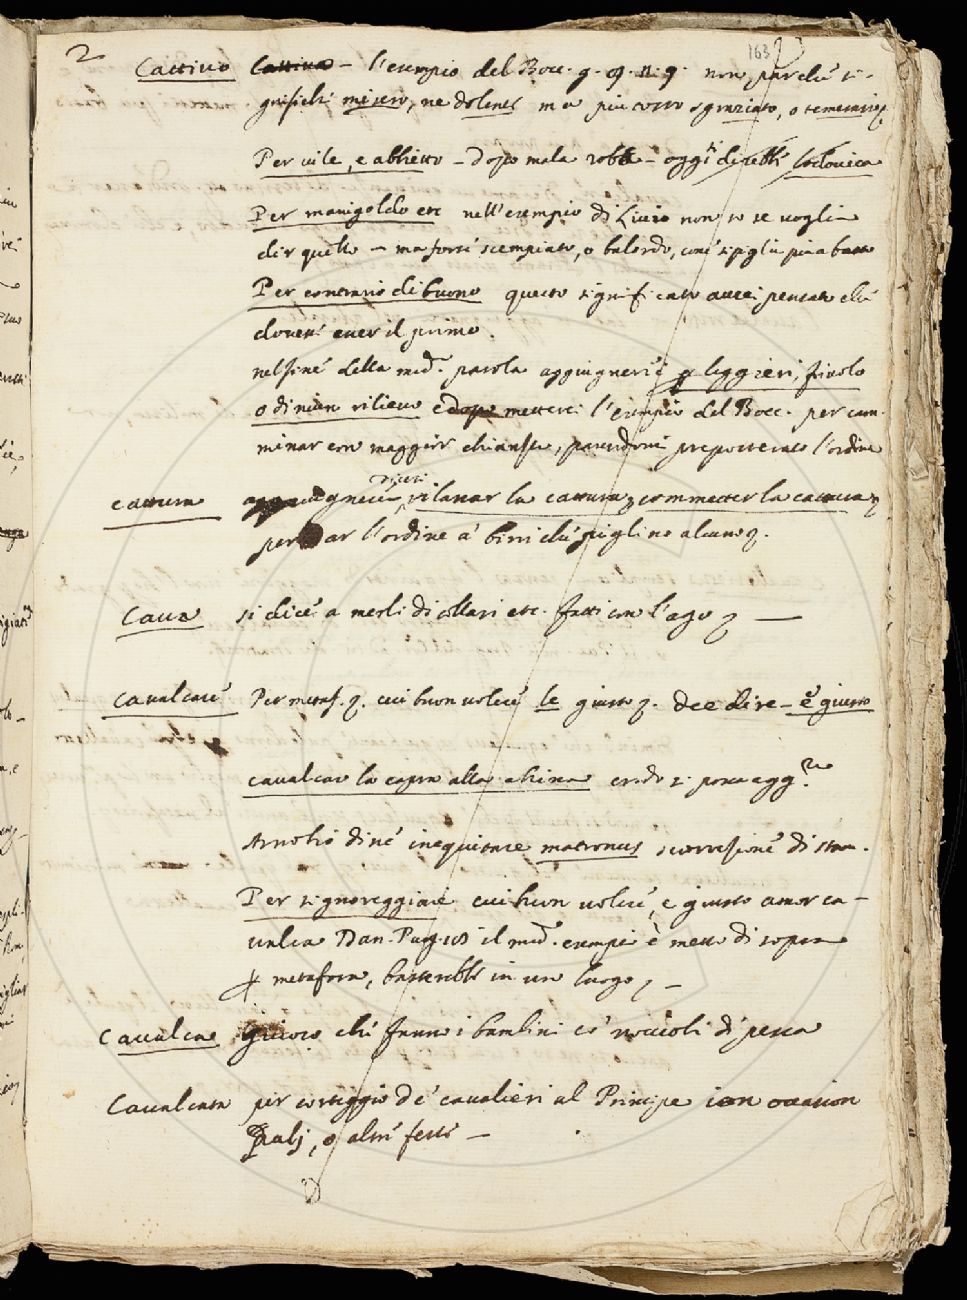 2 163
Cattivo Cattivo – l'esempio del Bocc. g. 9. n. 9. non par che si-
gnifichi misero, ne dolens ma piu tosto sgraziato, o temerario
Per vile, e abbietto – dopo mala robba – oggi direbbesi lodovica
Per manigoldo etc nell'esempio di Livio non so se voglia
dir quello – ma forse scempiato, o balordo, come si piglia piu a basso
Per contrario di buono questo significato averei pensato che
dovesse esser il primo.
nel fine della med. parola aggiugnerei p leggieri, frivolo
o di niun rilievo e dopo metterei l'esempio del Bocc. per cam-
minar con maggior chiarezza, parendomi preposterato l'ordine
cattura aggiugnerei rilassar la cattura, commetter la cattura
per dar l'ordine à birri che piglino alcuno.
Cava si dice a merli di collari etc. fatti con l'ago —
Cavalcare Per metaf. cui buon volere le giusto. Dee dire – è giusto
cavalcar la capra alla china credo si possa agg.re
Arnobio dice inequitare matronas
Per signoreggiare cui buon volere, e giusto amor ca-
valca Dan. Purg. il med. esempio è messo di sopra
p metafora, basterebbe in un luogo –
Cavalca giuoco che fanno i bambini co' noccioli di pesca
Cavalcata per corteggio de' cavalieri al Principe in occasion
Palj, o altre feste –